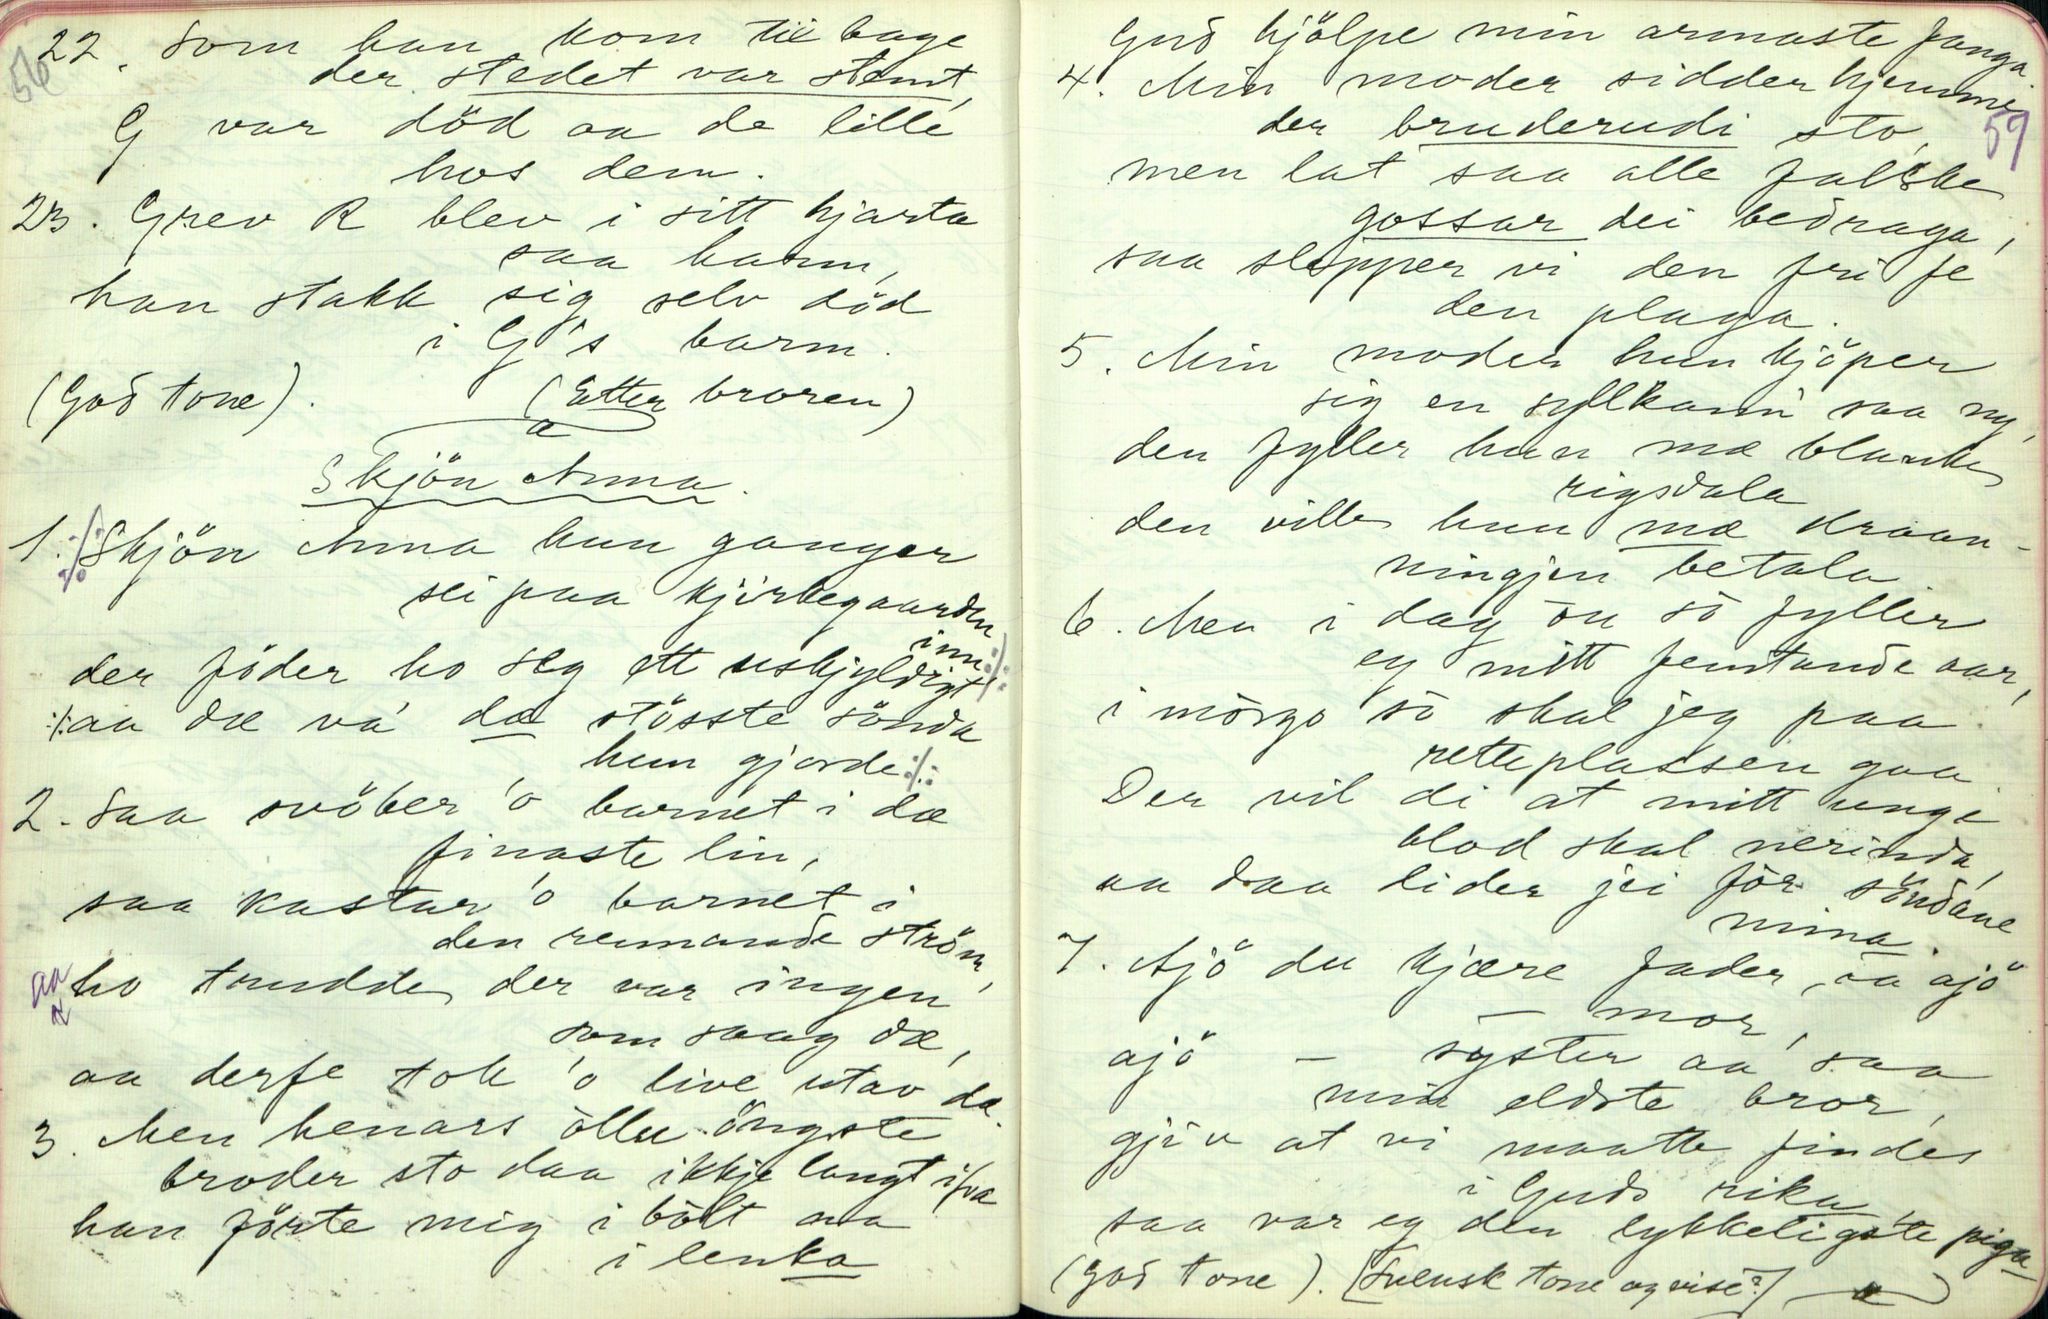 56
22. Som han kom tilbage
der stedet var stemt,
G var död aa de lille
hos dem.
23. Grev R blev i sitt hjarta
saa harm,
han stakk sig selv död
i G's barm.
(God tone). (Etter broren)
Skjön Anna.
1. :/: Skjön Anna hun ganger
sei paa kjirkegaarden
inn :/:
der föder ho seg ett uskjyldigt
:/: aa dæ va' dæ stösste sönda
hun gjorde :/:
2. Saa svöber 'o barnet i dæ
finaste lin,
saa kastar 'o barnet i
den rennande ström,
aa ho trudde der var ingen
som saag dæ,
aa derfe tok 'o live utav dæ.
3. Men henars öllu öngste
broder sto daa ikkje langt ifra
han förte mig i bölt aa
i lenka
59
Gud hjölpe min armaste fanga.
4. Min moder sidder hjemme
der bruderudi sto,
men lat saa alle falske
gossar dei bedraga,
saa slepper vi den fri fe
den plaga.
5. Min moder hun kjöper
sig en syllkann saa ny,
den fyller hun mæ blanke
rigsdala
den ville hun mæ draan-
ningjen betala.
6. Men i dag ön sö fyller
eg mitt femtande aar,
i mörgo sö skal jeg paa
retteplassen gaa
Der vil di at mitt unge
blod skal nerinda,
aa daa lider jei för söndane
mina.
7. Ajö du kjære fader, aa ajö
— mor,
ajö — syster aa saa
min eldste bror,
gjiv at vi maatte findes
i Guds rika
saa var eg den lykkeligste piga
(God tone). [Svensk tone og vise?]